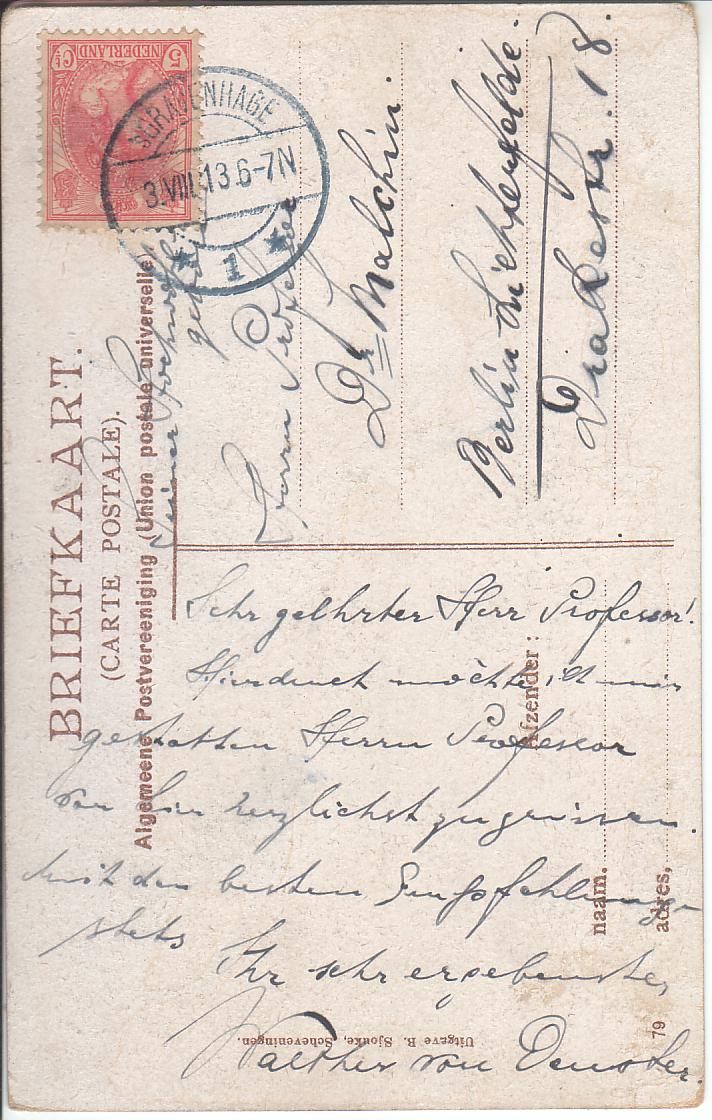 NEDERLAND
5 Ct
'SGRAVENHAGE
3.VIII.13.6-7N
1
BRIEFKAART.
(CARTE POSTALE).
Algemeene Postvereeniging (Union postale universelle)
Seiner Hochwohl
geb.
Herrn Professor
Dr Malchin.
Berlin-Lichterfelde.
Drakestr. 18.
Sehr geehrter Herr Professor!
Hierdurch möchte ich mir
gestatten Herrn Professor
von hier herzlichst zu grüssen.
Mit den besten Empfehlungen
stets
Ihr sehr ergebenster
Walther von
Afzender:
naam.
adres,
79
Uitgave R. Sjouke, Scheveningen.